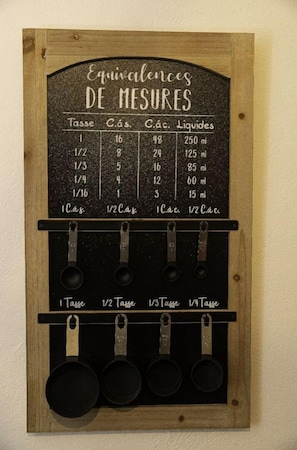 Equivalences
DE MESURES
Tasse C.à.s. C.à.c. Liquides
1 16 48 250 ml
1/2 8 24 125 ml
1/3 5 16 85 ml
1/4 4 12 60 ml
1/16 1 3 15 ml
1 C.à.s. 1/2 C.à.s. 1 C.à.c. 1/2 C.à.c.
1 Tasse 1/2 Tasse 1/3 Tasse 1/4 Tasse